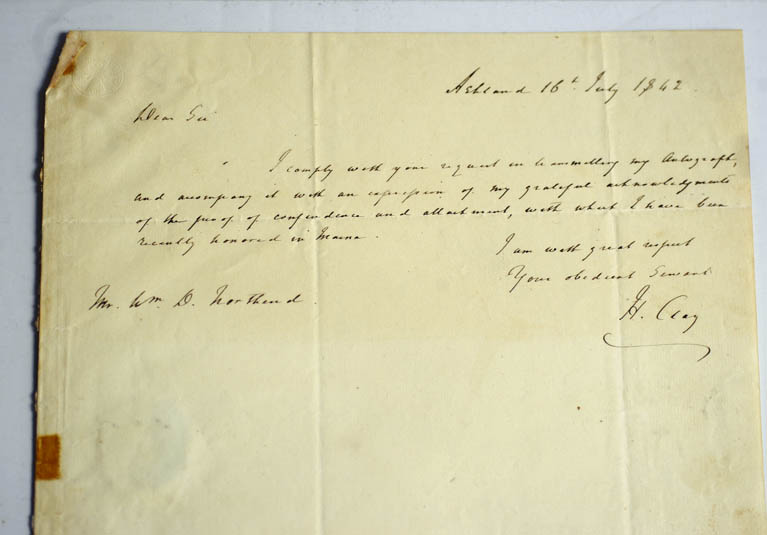 Ashland 16th July 1842
Dear Sir
I comply with your request in transmitting my Autograph,
and accompany it with an expression of my grateful acknowledgments
of the proof of confidence and attachment, with which I have been
recently honored in Maine.
I am with great respect
Your obedient Servant
Mr. Wm. D. Northend.
H. Clay